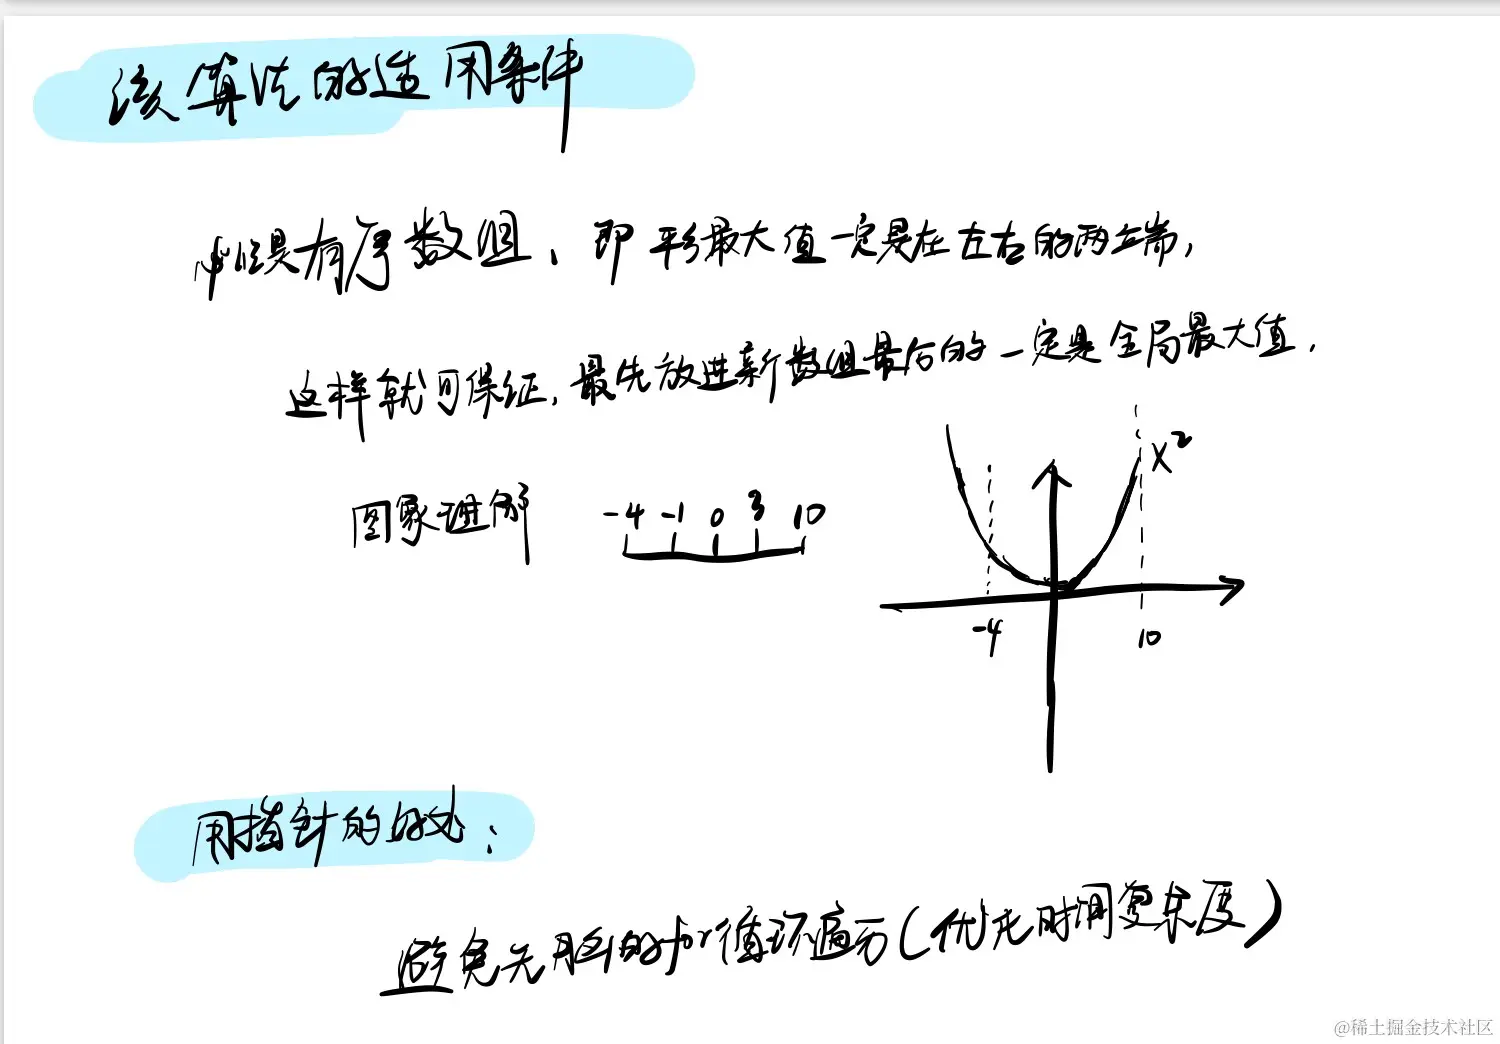 该算法的适用条件
必须是有序数组、即平方最大值一定是在左右的两端,
这样就可保证,最先放进新数组最后的一定是全局最大值.
图象理解 -4 -1 0 3 10
x²
-4 10
用指针的好处:
避免无脑的for循环遍历(优先时间复杂度)
@稀土掘金技术社区